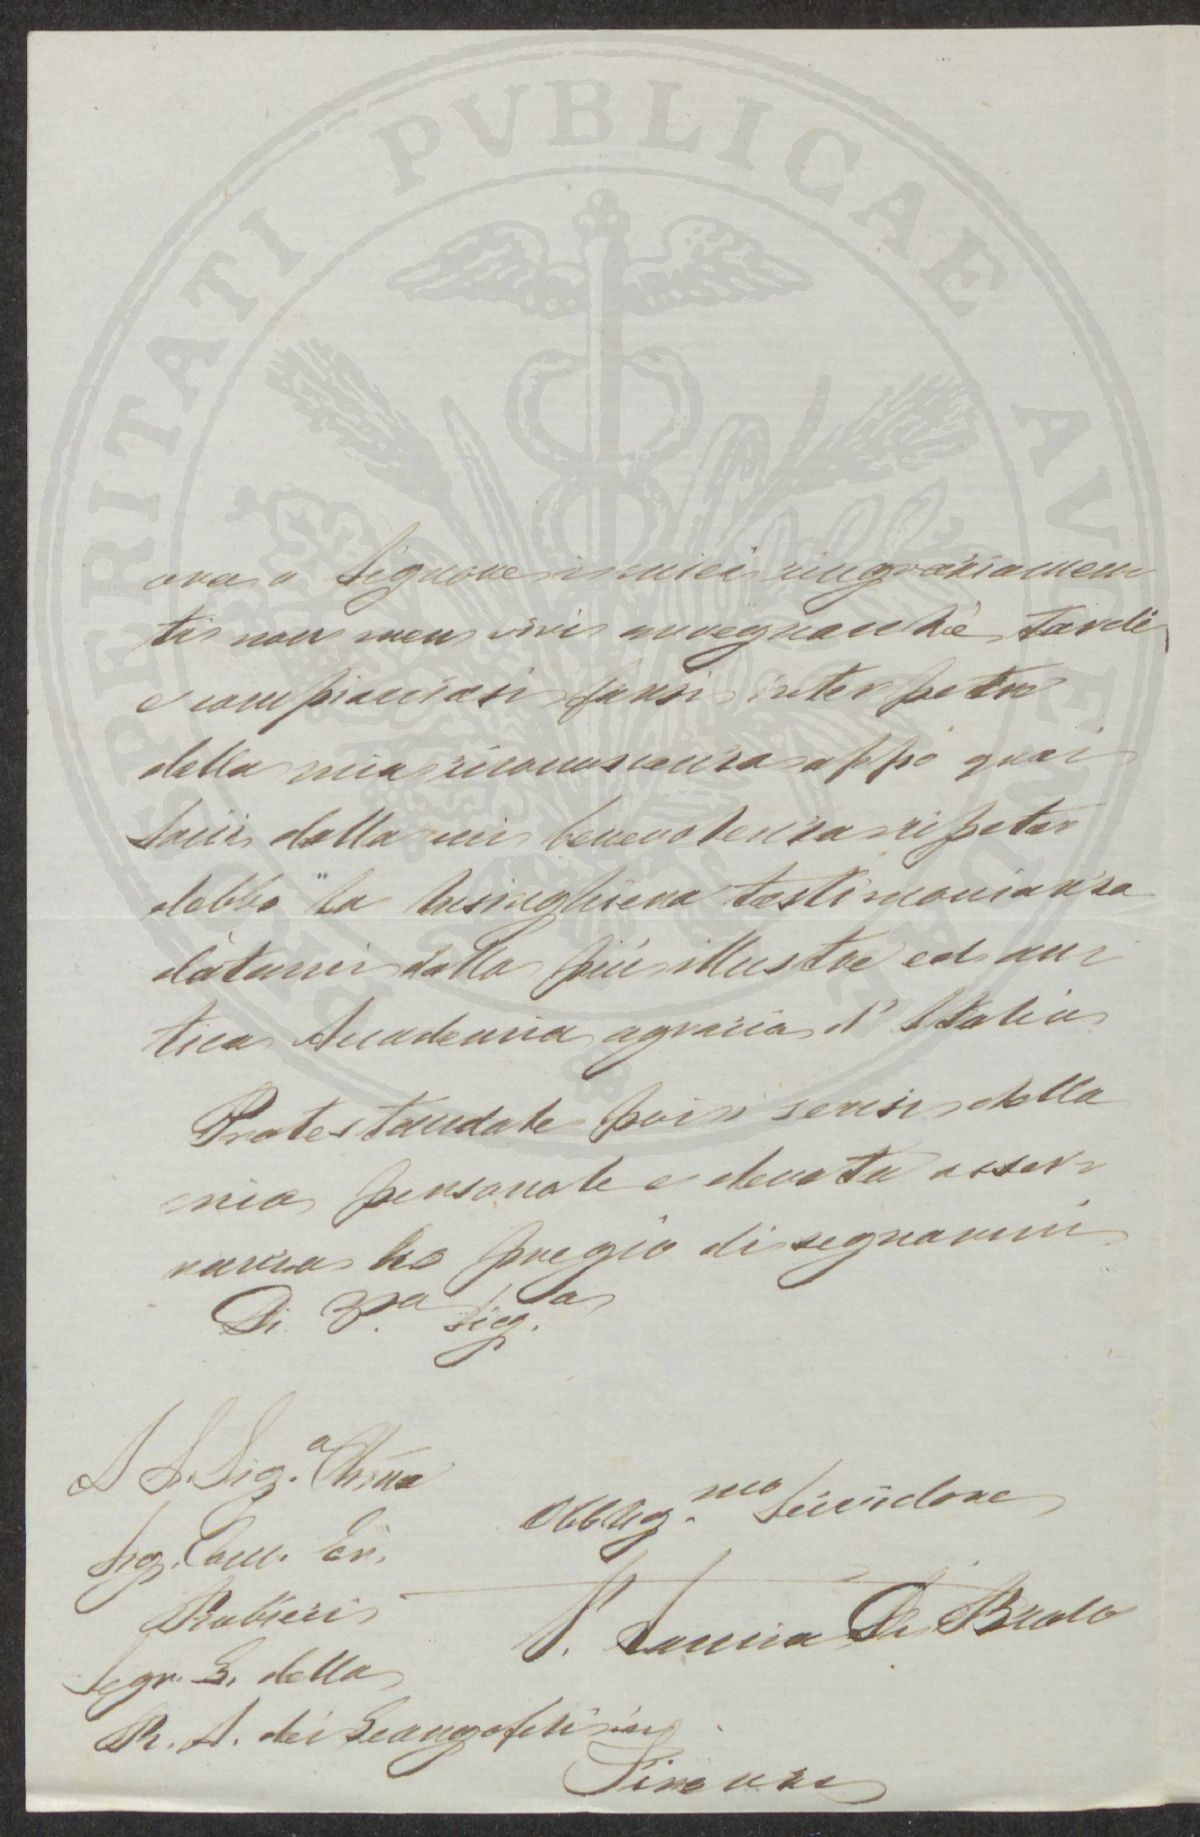 PROSPERITATI PVBLICAE AVGENDAE
ora o Signore i miei ringraziamen
ti non men vivi avvegnachè tardi,
e compiacciasi farsi interpetre
della mia riconoscenza appo quei
Socii dalla cui benevolenza ripeter
debbo la lusinghiera testimonianza
datami dalla più illustre ed an-
tica Accademia agraria d'Italia
Protestandole poi i sensi della
mia personale e devota osser-
vanza ho pregio di segnarmi
Di V.ª Sig.ª
A S. Sig.ª Chiña
Sig. Cav.
Rubieri
Segr. G. della
R. A. dei Georgofili in
Firenze
Obblig.mo Servidore
F. Lancia Di Brolo